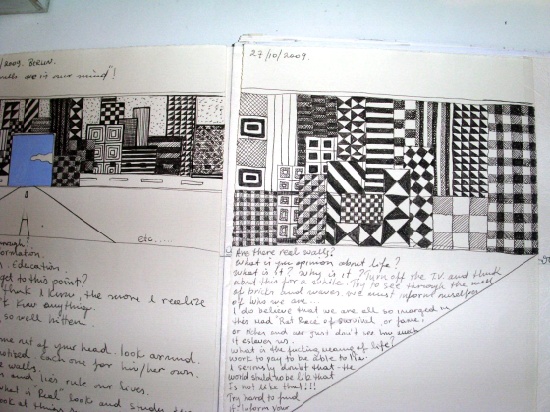 /2009. BERLIN.
walls are in our mind"!
etc.....
through.
formation.
. Education.
get to this point?
think I know, the more I realize
t know anything.
so well hidden.
me out of your head. look around.
noticed each one for him/her own.
e walls.
and lies rule our lives.
what is "Real" look and study the
look at things
27/10/2009.
Are there real walls?
What is your opinion about life?
What is it? Why is it? Turn off the T.V. and think
about this for a while. Try to see through the walls
of bricks and we must inform ourselves
of who we are...
I do believe that we are all so merged in
this mad "Rat Race of survival, or fame,
or riches and we just don't see how much
it eslaves us.
what is the fucking meaning of life?
work to pay to be able to live.
I seriously doubt that the
world should no be like that
Is not like this!!!
Try hard to find
it. Inform your